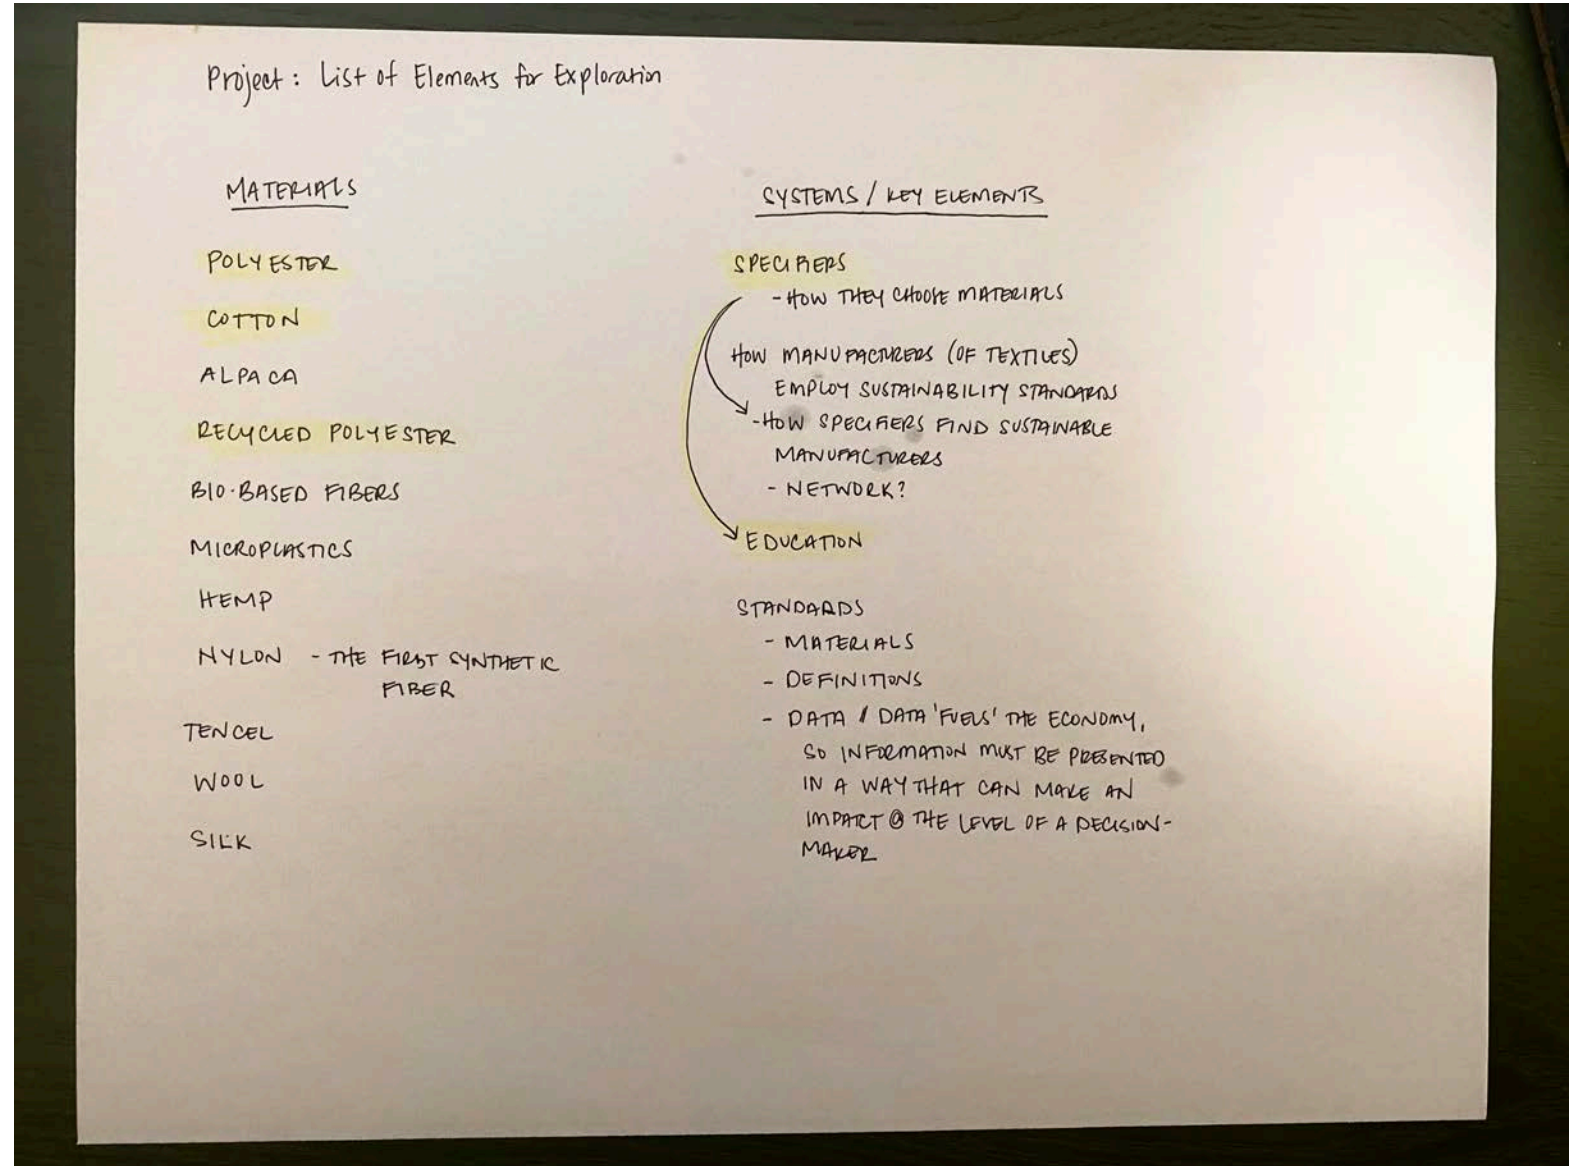 Project: List of Elements for Exploration
MATERIALS
POLYESTER
COTTON
ALPACA
RECYCLED POLYESTER
BIO-BASED FIBERS
MICROPLASTICS
HEMP
NYLON - THE FIRST SYNTHETIC
FIBER
TENCEL
WOOL
SILK
SYSTEMS / KEY ELEMENTS
SPECIFIERS
- HOW THEY CHOOSE MATERIALS
HOW MANUFACTURERS (OF TEXTILES)
EMPLOY SUSTAINABILITY STANDARDS
- HOW SPECIFIERS FIND SUSTAINABLE
MANUFACTURERS
- NETWORK?
EDUCATION
STANDARDS
- MATERIALS
- DEFINITIONS
- DATA / DATA 'FUELS' THE ECONOMY,
SO INFORMATION MUST BE PRESENTED
IN A WAY THAT CAN MAKE AN
IMPACT @ THE LEVEL OF A DECISION-
MAKER